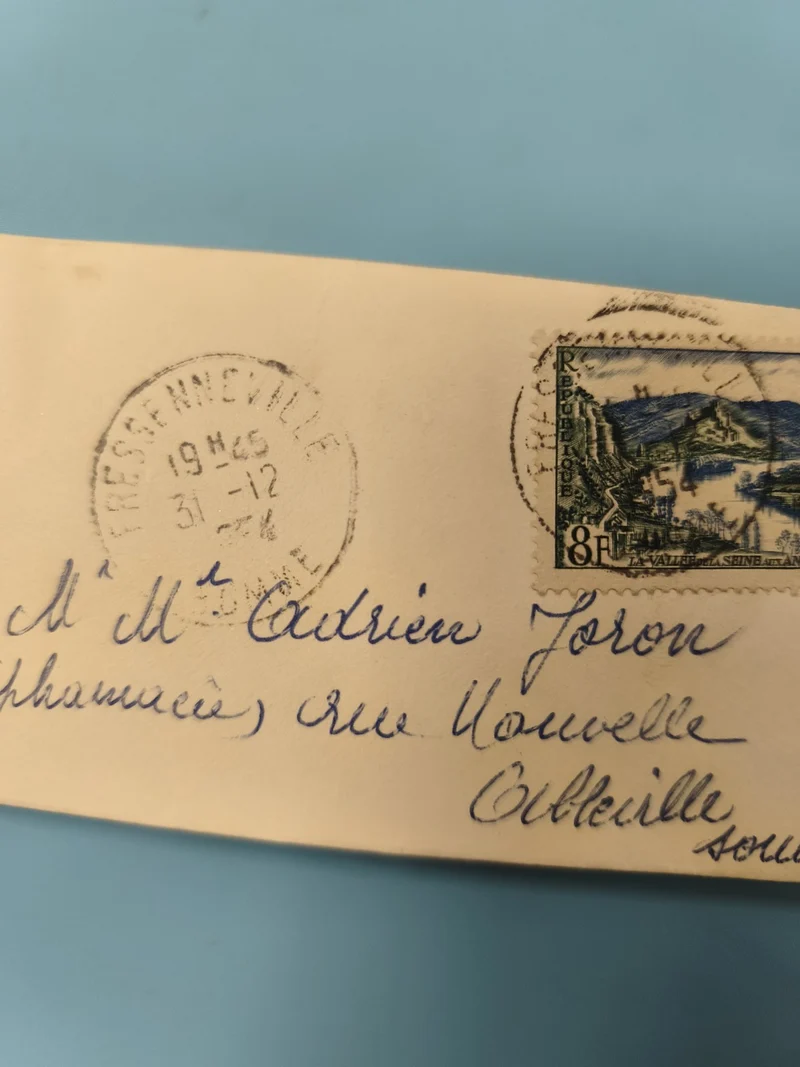 FRESSENNEVILLE
19 H 45
31 -12
954
SOMME
RÉPUBLIQUE
54
8F
LA VALLÉE DE LA SEINE AUX AN
Mr Mt Adrien Joron
(pharmacie) rue Nouvelle
Abbeville
som